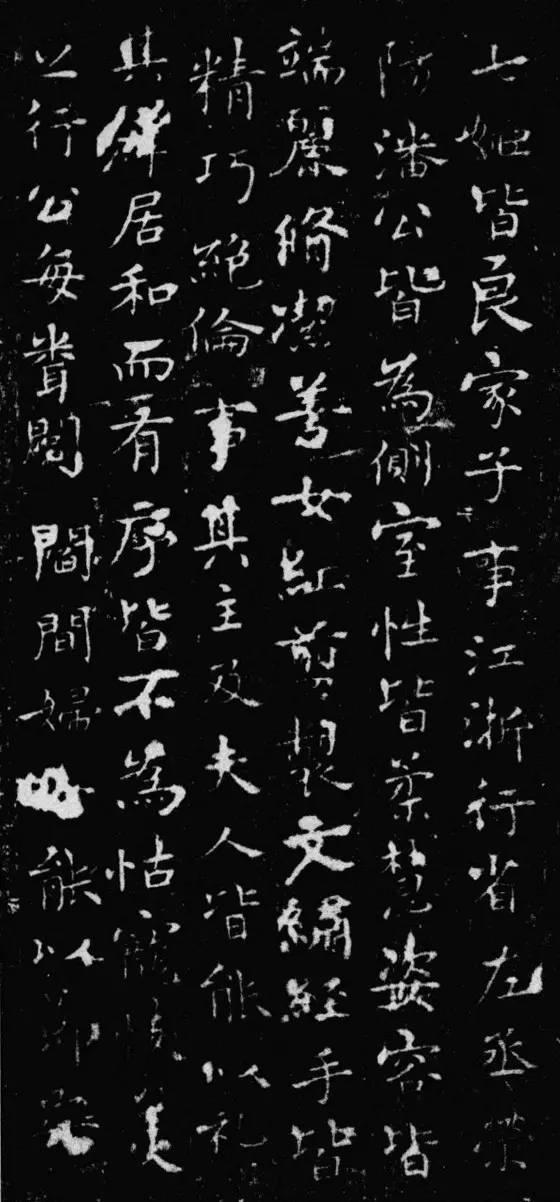 七姬皆良家子事江浙行省左丞荣
阳潘公皆為側室性皆柔慧姿容皆
端麗脩潔善女紅剪製文繡經手皆
精巧絕倫事其主及夫人皆能以礼
其羣居和而有序皆不為怙寵忮美
之行公每聞閭閻間婦能以節